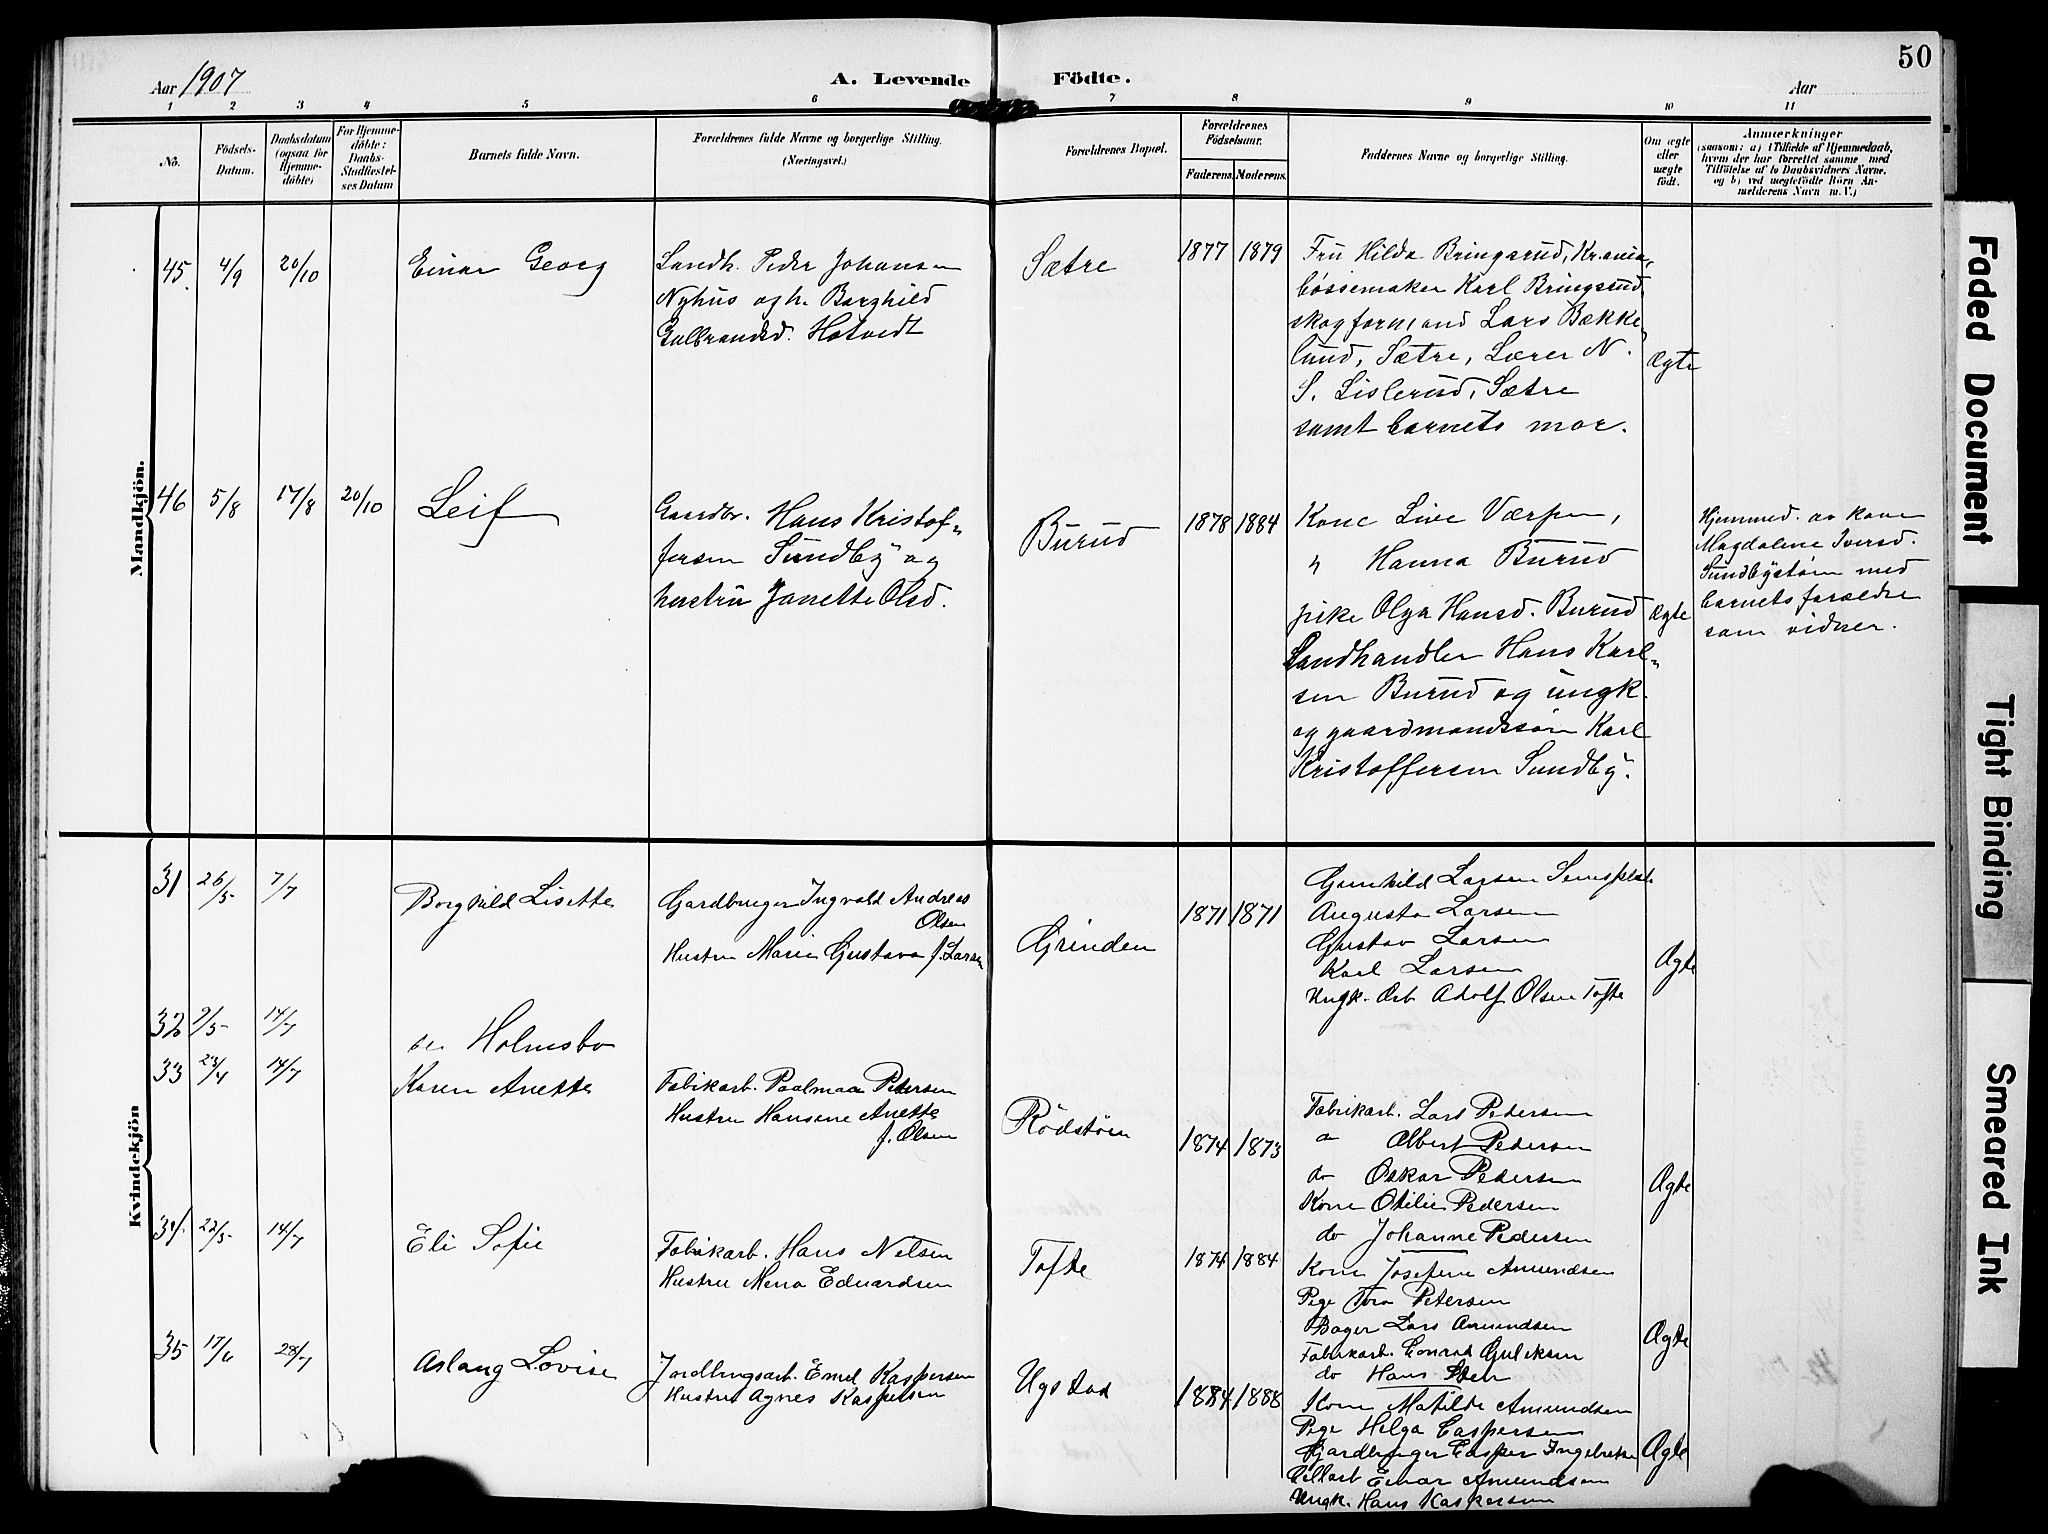 50
Aar 1907
A. Levende Födte.
Aar
1 2 3 4 5 6 7 8 9 10 11
No.
Födsels-
Datum.
Daabsdatum
(ogsaa for
Hjemme-
döbte)
For Hjemme-
döbte:
Daabs-
Stadfæstel-
ses Datum
Barnets fulde Navn.
Forældrenes fulde Navne og borgerlige Stilling.
(Næringsvei.)
Forældrenes Bopæl.
Forældrenes
Födselsaar.
Faderens. Moderens.
Faddernes Navne og borgerlige Stilling.
Om ægte
eller
uægte
födt.
Anmærkninger
(saasom: a) i Tilfælde af Hjemmedaab,
hvem der har forrettet samme med
Tilföielse af to Daabsvidners Navne.
og b) ved uægtefödte Börn An-
melderens Navn m. V.)
Mandkjön.
45. 4/9 20/10
Einar Georg
Landh. Peder Johansen
Nyhus og h. Borghild
Gulbrandsd. Hotvedt
Sætre
1877 1879
Fru Hilda Bringsrud, Kr.ania,
bøssemaker Karl Bringsrud,
skogformand Lars Bække-
lund, Sætre, Lærer N.
S. Lislerud, Sætre
samt barnets mor.
Ægte
46 5/8 17/8 20/10
Leif
Gaardbr. Hans Kristof-
fersen Sundby og
hustru Janette Olsd.
Burud
1878 1884
Kone Live Værpen,
" Hanna Burud
pike Olga Hansd. Burud
Landhandler Hans Karl-
sen Burud og ungk.
og gaardmandssøn Karl
Kristoffersen Sundby.
Ægte
Hjemmed. av kone
Magdalene Iversd.
Sundbystøen med
barnets forældre
som vidner.
Kvindekjön
31 26/5 7/7
Borghild Lisette
Gardbruger Ingvald Andreas
Olsen
Hustru Marie Gustava f. Larsen
Grinden
1871 1871
Gunhild Larsen
Augusta Larsen
Gustav Larsen
Karl Larsen
Ungk. Arb Adolf Olsen Tofte
Ægte
32 2/5 14/7
se Holmsbo
33 23/4 14/7
Karen Anette
Fabikarb. Paalmaa Petersen
Hustru Hansene Anette
f. Olsen
Rödstöen
1874 1873
Fabrikarb. Lars Pedersen
do Albert Pedersen
do Oskar Pedersen
Kone Otilie Pedersen
do Johanne Pedersen
Ægte
34 22/5 14/7
Eli Sofie
Fabrikarb. Hans Nilsen
Hustru Mena Eduardsen
Tofte
1874 1884
Kone Josefine Amundsen
Pige Tora Petersen
Bager Lars Amundsen
Fabrikarb. Conrad Guleksen
do Hans
Ægte
35 17/6 28/7
Aslaug Lovise
Jordbrugsarb. Emil Kaspersen
Hustru Agnes Kaspersen
Ugstad
1884 1888
Kone Matilde Amundsen
Pige Helga Caspersen
Gjardbruger Casper Ingebretsen
Cellarb Einar Amundsen
Ungk. Hans Kaspersen
Ægte
Faded Document
Tight Binding
Smeared Ink